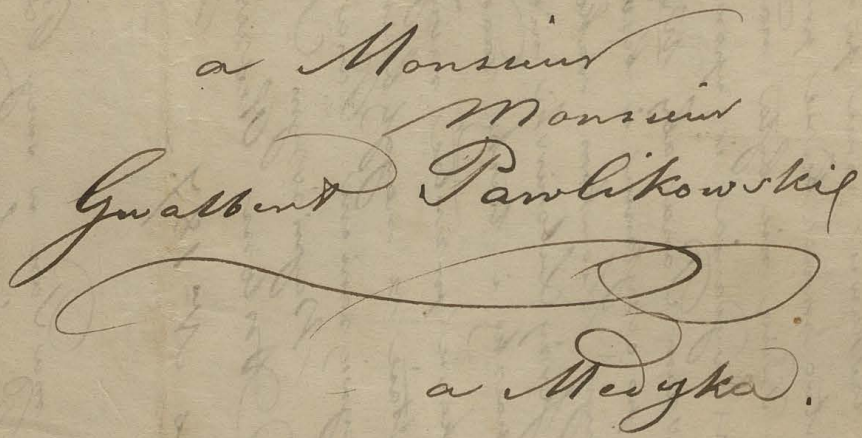 a Monsieur
Monsieur
Gwalbert Pawlikowski
a Medyka.